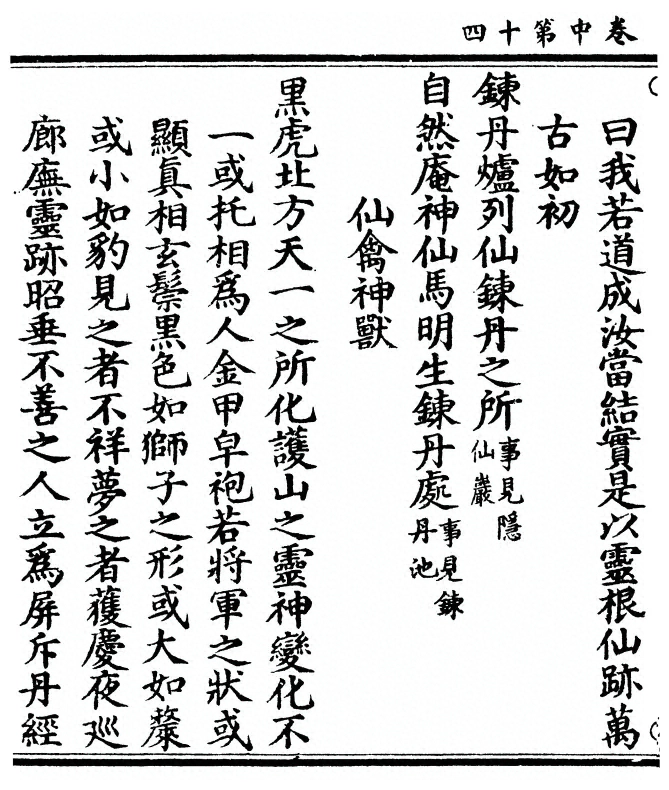 卷中第十四
曰我若道成汝當結實是以靈根仙跡萬
古如初
鍊丹爐列仙鍊丹之所事見隱仙巖
自然庵神仙馬明生鍊丹處事見鍊丹池
仙禽神獸
黑虎北方天一之所化護山之靈神變化不
一或托相爲人金甲皁袍若將軍之狀或
顯眞相玄鬃黑色如獅子之形或大如犛
或小如豹見之者不祥夢之者獲慶夜巡
廊廡靈跡昭垂不善之人立爲屏斥丹經